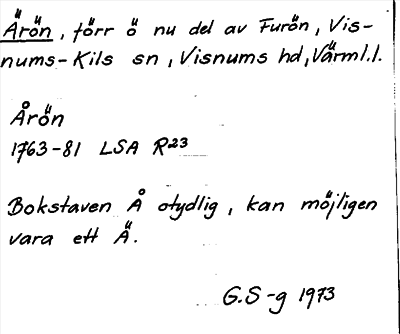 Ärön, förr ö nu del av Furön, Vis-
nums-Kils sn, Visnums hd, Värml.l.
Årön
1763-81 LSA R23
Bokstaven Å otydlig, kan möjligen
vara ett Ä.
G.S-g 1973